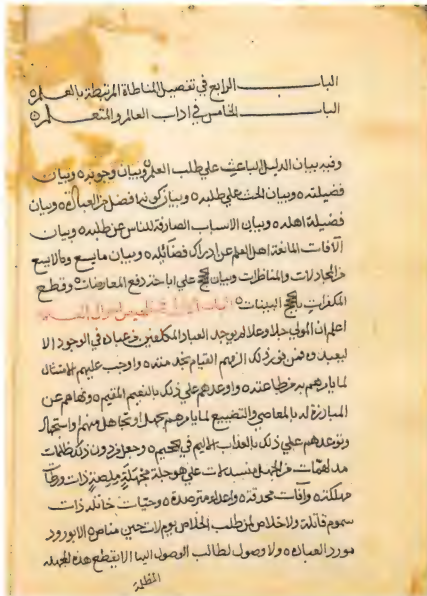 الباب الرابع في تفصيل المناطاة المرتبطة بالعلم
الباب الخامس في اداب العالم والمتعلم
وفيه بيان الدليل الباعث علي طلب العلم وبيان وجوبه وبيان
فضيلته وبيان الحث علي طلبه وبيان كونه افضل من العبادة وبيان
فضيلة اهله وبيان الاسباب الصارفة للناس عن طلبه وبيان
الآفات المانعة اهل العلم عن ادراك فضائله وبيان مايسع ومالايسع
من المجادلات والمناظرات وبيان علي اباحة دفع المعارضات وقطع
المكفرات البينات الباب الاول
اعلم ان المولي جل وعلا لم يوجد العباد المكلفين من عباده في الوجود الا
ليعبدوه فمن ذلك الزمهم القيام واوجب عليهم الامتثال
لما يامرهم به من طاعته واوعدهم علي ذلك بالنعيم المقيم ونهاهم عن
المبارزة له بالمعاصي والتضييع لما يامرهم
وتوعدهم علي ذلك بالعذاب الاليم في الجحيم وجعل من دون ذلك ظلمات
مدلهمات من الجهل علي ذات
مهلكة وآفات محدقة واعداء مترصدة وحيات خاتلة ذات
سموم قاتلة ولا خلاص لمن طلب الخلاص يوم لات حين مناص الا بورود
مورد العبادة ولا وصول لطالب الوصول اليها الا بقطع هذه
المظلمة